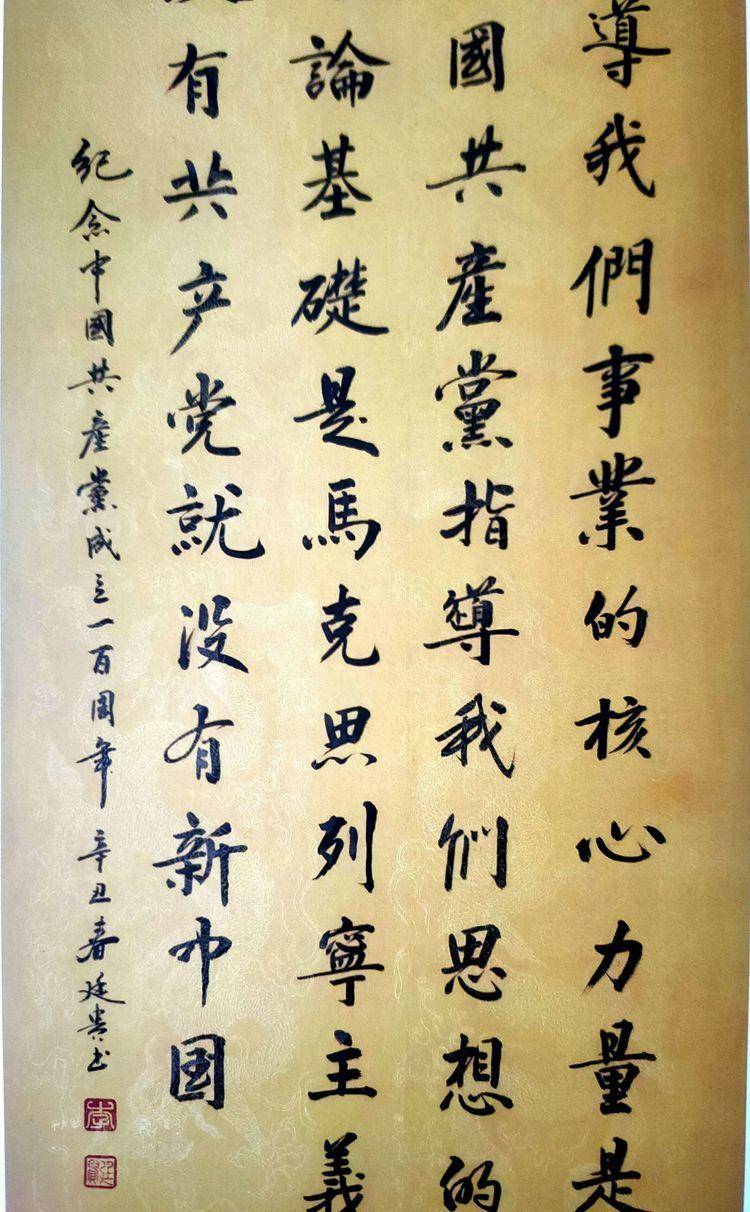 導我們事業的核心力量是
國共產黨指導我们思想的
論基礎是馬克思列寧主義
有共产党就没有新中国
纪念中國共產黨成立一百周年 辛丑春廷贵书
李